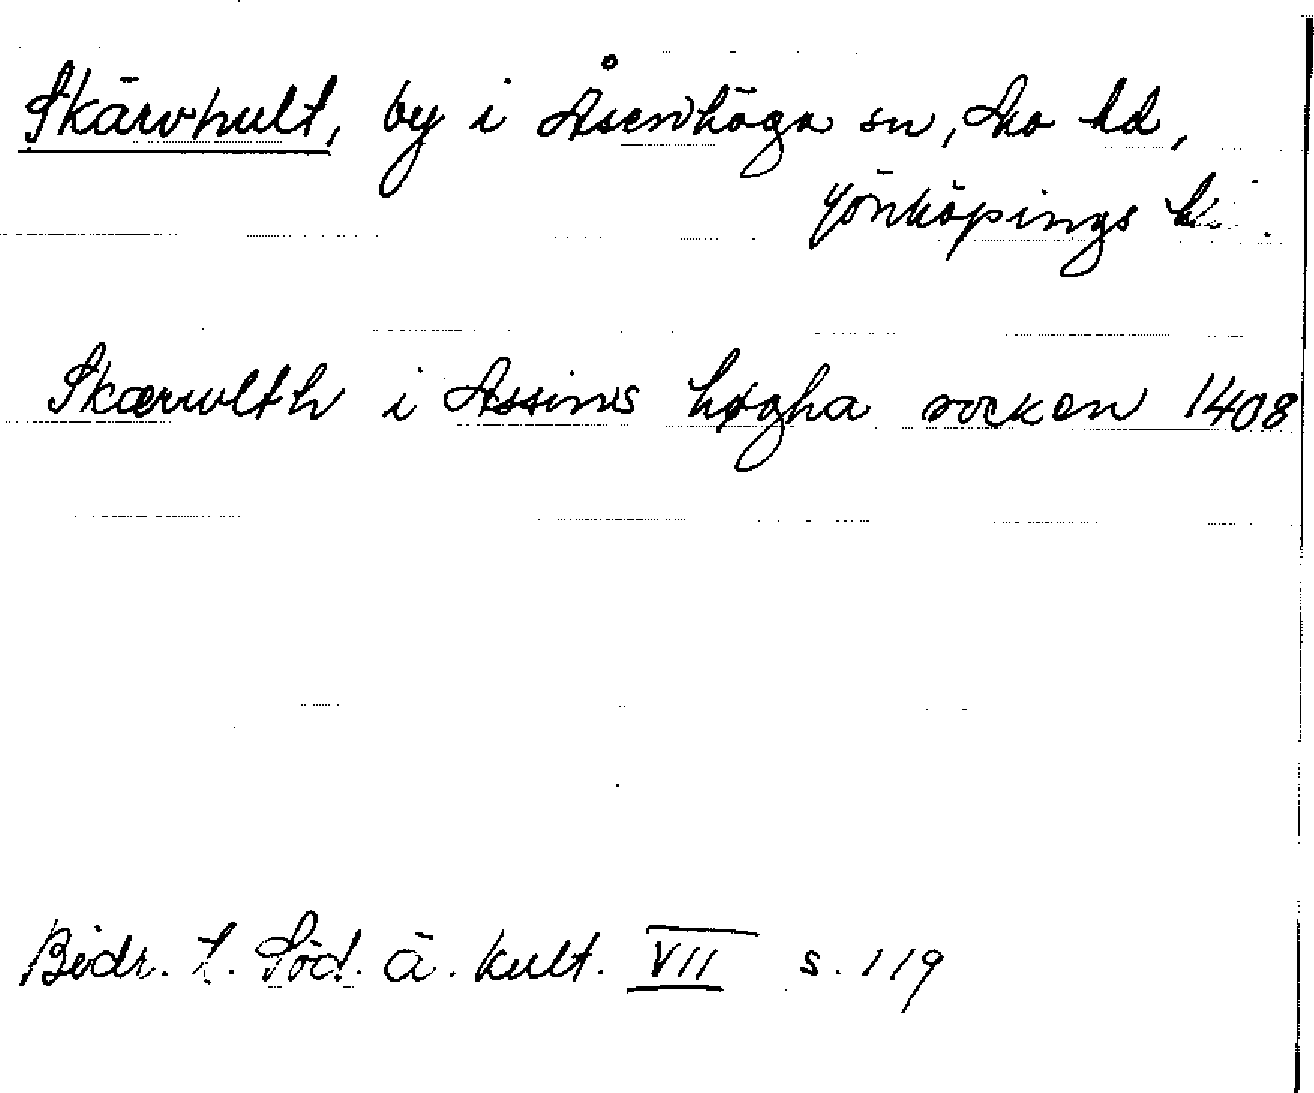 Skärvhult, by i Åsenhöga sn, Mo hd,
Jönköpings
Skærwlth i Assins høgha socken 1408
Bidr. t. Söd. ä. kult. VII s. 119